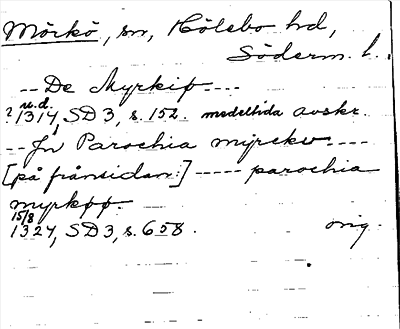 Mörkö, sn, Hölebo hd,
Söderm. l.
-- De Myrkiø ----
u.d.
? 1314, SD 3, s. 152. medeltida avskr.
-- Jn Parochia myrckø ----
[på frånsidan:] ----- parochia
myrkøø.
15/8
1324, SD 3, s. 658. orig.